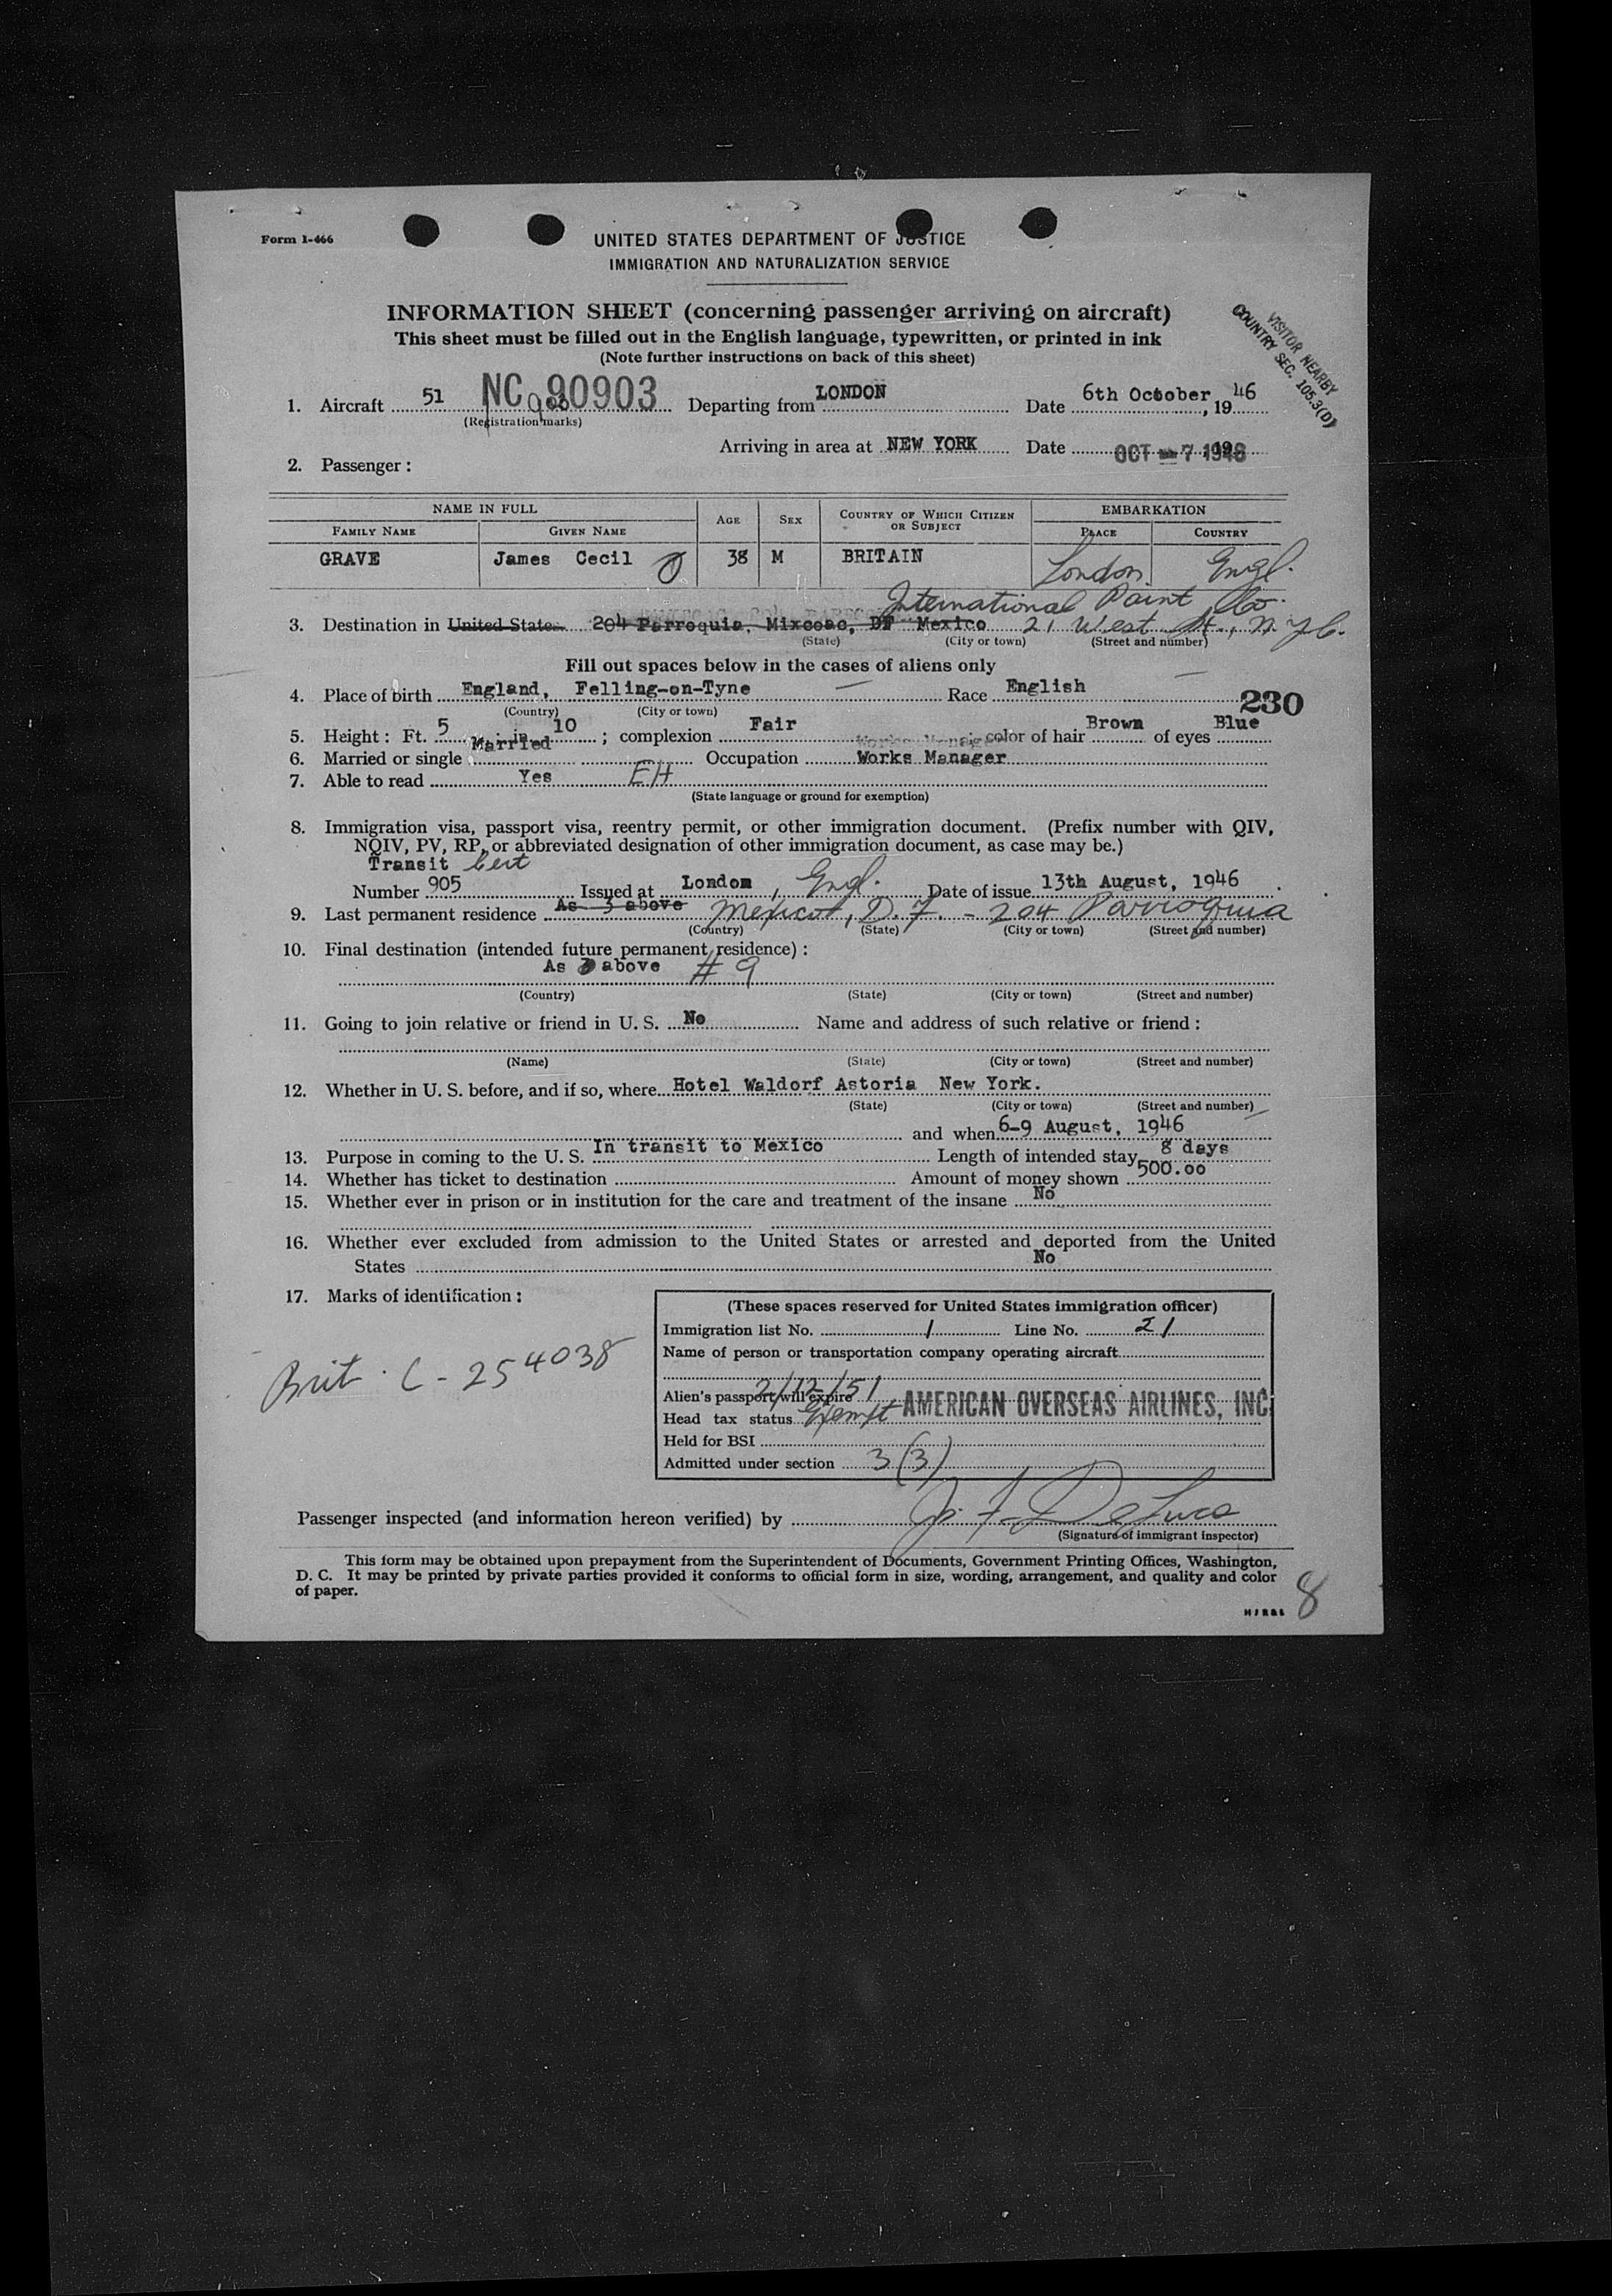 Form I-466
UNITED STATES DEPARTMENT OF JUSTICE
IMMIGRATION AND NATURALIZATION SERVICE
INFORMATION SHEET (concerning passenger arriving on aircraft)
This sheet must be filled out in the English language, typewritten, or printed in ink
(Note further instructions on back of this sheet)
VISITOR NEARBY
COUNTRY SEC. 105.3(D)
1. Aircraft 51 NC 90903 Departing from LONDON Date 6th October, 1946
(Registration marks)
Arriving in area at NEW YORK Date OCT - 7 1946
2. Passenger:
NAME IN FULL AGE SEX COUNTRY OF WHICH CITIZEN OR SUBJECT EMBARKATION
FAMILY NAME GIVEN NAME PLACE COUNTRY
GRAVE James Cecil 38 M BRITAIN London Engl.
International Paint Co.
3. Destination in United States 204 Parroquia, Mixcoac, DF Mexico 21 West St., N.Y.C.
(State) (City or town) (Street and number)
Fill out spaces below in the cases of aliens only
4. Place of birth England, Felling-on-Tyne Race English
(Country) (City or town)
230
5. Height: Ft. 5 in. 10; complexion Fair; color of hair Brown of eyes Blue
6. Married or single Married Occupation Works Manager
7. Able to read Yes EH
(State language or ground for exemption)
8. Immigration visa, passport visa, reentry permit, or other immigration document. (Prefix number with QIV,
NQIV, PV, RP, or abbreviated designation of other immigration document, as case may be.)
Transit Cert
Number 905 Issued at London, Engl. Date of issue 13th August, 1946.
9. Last permanent residence As 3 above Mexico, D.F. - 204 Parroquia
(Country) (State) (City or town) (Street and number)
10. Final destination (intended future permanent residence):
As 3 above # 9
(Country) (State) (City or town) (Street and number)
11. Going to join relative or friend in U. S. No Name and address of such relative or friend:
(Name) (State) (City or town) (Street and number)
12. Whether in U. S. before, and if so, where Hotel Waldorf Astoria New York.
(State) (City or town) (Street and number)
and when 6-9 August, 1946
13. Purpose in coming to the U. S. In transit to Mexico Length of intended stay 8 days
14. Whether has ticket to destination Amount of money shown 500.00
15. Whether ever in prison or in institution for the care and treatment of the insane No
16. Whether ever excluded from admission to the United States or arrested and deported from the United
States No
17. Marks of identification:
Brit. C-254038
(These spaces reserved for United States immigration officer)
Immigration list No. 1 Line No. 21
Name of person or transportation company operating aircraft
Alien's passport will expire 2/12/51 AMERICAN OVERSEAS AIRLINES, INC.
Head tax status Exempt
Held for BSI
Admitted under section 3(3)
Passenger inspected (and information hereon verified) by J. F. DeLuca
(Signature of immigrant inspector)
This form may be obtained upon prepayment from the Superintendent of Documents, Government Printing Offices, Washington,
D. C. It may be printed by private parties provided it conforms to official form in size, wording, arrangement, and quality and color
of paper.
8